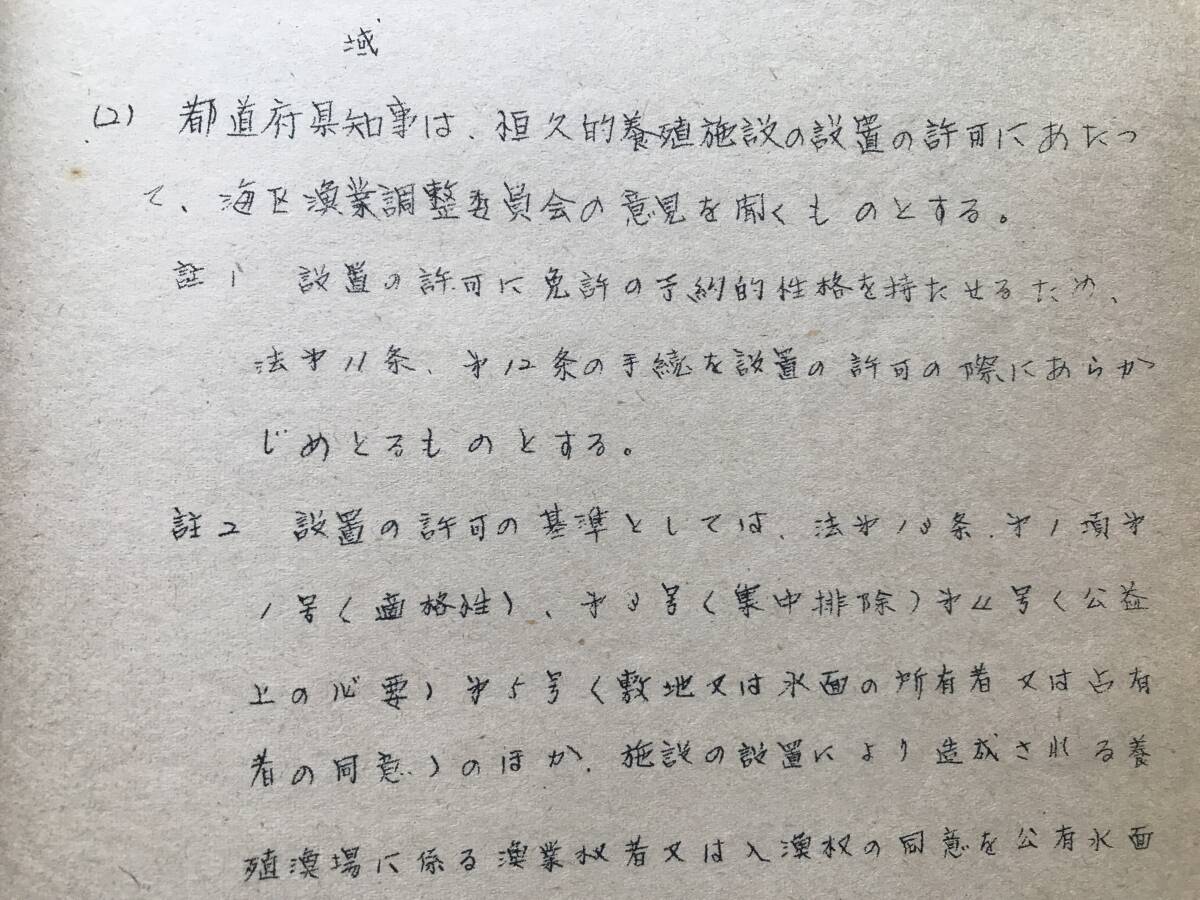 域
(2) 都道府県知事は、恒久的養殖施設の設置の許可にあたっ
て、海区漁業調整委員会の意見を聞くものとする。
註1 設置の許可に免許の予約的性格を持たせるため、
法第11条、第12条の手続を設置の許可の際にあらか
じめとるものとする。
註2 設置の許可の基準としては、法第13条、第1項第
1号(適格性)、第3号(集中排除)第4号(公益
上の必要)第5号(敷地又は水面の所有者又は占有
者の同意)のほか、施設の設置により造成される養
殖漁場に係る漁業权者又は入漁权の同意を公有水面